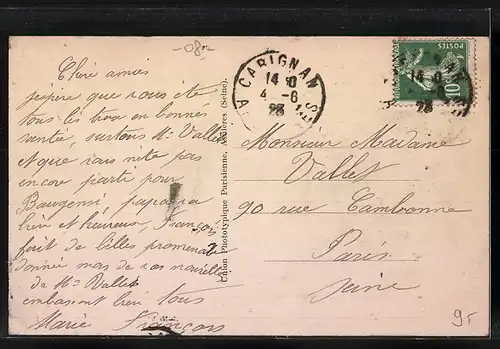 -08-
Chère amies
j'espère que vous ete
tous les trois en bonnés
santé, surtous Mr Vallet
et que vous nête pas
encore partie pour
Baugensi, papa va
bien et heureux, François
fait de belles promenade
donnée mas de vos nouvelles
de Mr Vallet
embasant bien tous
Marie François
Union Phototypique Parisienne, Asnières (Seine).
CARIGNAN
14 0
4 -6
23
POSTES
10
Monsieur Madame
Vallet
90 rue Cambronne
Paris
Seine
9.-